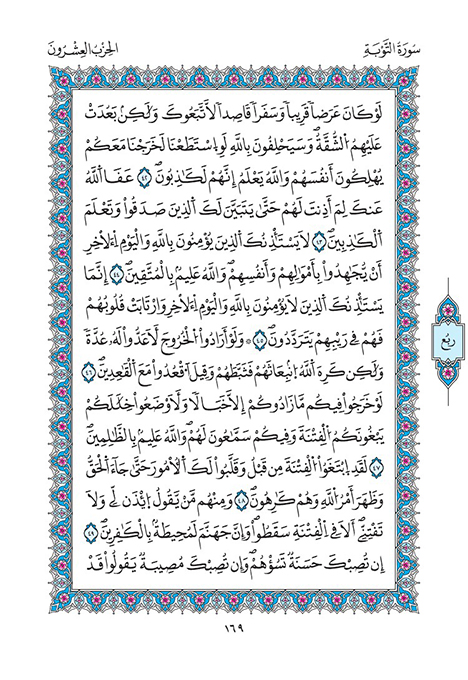 سُورَةُ التَّوْبَةِ
الحِزْبُ العِشْرُونَ
لَوْ كَانَ عَرَضاٗ قَرِيباٗ وَسَفَراٗ قَاصِداٗ لَّاتَّبَعُوكَ وَلَٰكِنۢ بَعُدَتْ
عَلَيْهِمُ اُ۬لشُّقَّةُۖ وَسَيَحْلِفُونَ بِاللَّهِ لَوِ اِ۪سْتَطَعْنَا لَخَرَجْنَا مَعَكُمْ
يُهْلِكُونَ أَنفُسَهُمْ وَاللَّهُ يَعْلَمُ إِنَّهُمْ لَكَٰذِبُونَۖ ٤٢ عَفَا اَ۬للَّهُ
عَنكَ لِمَ أَذِنتَ لَهُمْ حَتَّىٰ يَتَبَيَّنَ لَكَ اَ۬لذِينَ صَدَقُواْ وَتَعْلَمَ
اَ۬لْكَٰذِبِينَۖ ٤٣ لَا يَسْتَٰذِنُكَ اَ۬لذِينَ يُؤْمِنُونَ بِاللَّهِ وَالْيَوْمِ اِ۬لَاخِرِ
أَنْ يُّجَٰهِدُواْ بِأَمْوَٰلِهِمْ وَأَنفُسِهِمْۖ وَاللَّهُ عَلِيمُۢ بِالْمُتَّقِينَۖ ٤٤ إِنَّمَا
يَسْتَٰذِنُكَ اَ۬لذِينَ لَا يُؤْمِنُونَ بِاللَّهِ وَالْيَوْمِ اِ۬لَاخِرِ وَارْتَابَتْ قُلُوبُهُمْ
فَهُمْ فِي رَيْبِهِمْ يَتَرَدَّدُونَۖ ٤٥ ۞ وَلَوَ اَرَادُواْ اُ۬لْخُرُوجَ لَأَعَدُّواْ لَهُۥ عُدَّةٗ
وَلَٰكِن كَرِهَ اَ۬للَّهُ اُ۪نۢبِعَاثَهُمْ فَثَبَّطَهُمْ وَقِيلَ اَ۟قْعُدُواْ مَعَ اَ۬لْقَٰعِدِينَۖ ٤٦
لَوْ خَرَجُواْ فِيكُم مَّا زَادُوكُمُۥٓ إِلَّا خَبَالاٗ وَلَأَوْضَعُواْ خِلَٰلَكُمْ
يَبْغُونَكُمُ اُ۬لْفِتْنَةَ وَفِيكُمْ سَمَّٰعُونَ لَهُمْۖ وَاللَّهُ عَلِيمُۢ بِالظَّٰلِمِينَۖ
٤٧ لَقَدِ اِ۪بْتَغَوُاْ اُ۬لْفِتْنَةَ مِن قَبْلُ وَقَلَّبُواْ لَكَ اَ۬لُامُورَ حَتَّىٰ جَآءَ اَ۬لْحَقُّ
وَظَهَرَ أَمْرُ اُ۬للَّهِ وَهُمْ كَٰرِهُونَۖ ٤٨ وَمِنْهُم مَّنْ يَّقُولُ اُ۪يذَن لِّے وَلَا
تَفْتِنِّےٓۖ أَلَا فِي اِ۬لْفِتْنَةِ سَقَطُواْۖ وَإِنَّ جَهَنَّمَ لَمُحِيطَةُۢ بِالْكَٰفِرِينَۖ ٤٩
إِن تُصِبْكَ حَسَنَةٞ تَسُؤْهُمْۖ وَإِن تُصِبْكَ مُصِيبَةٞ يَقُولُواْ قَدَ
رُبُع
١٦٩